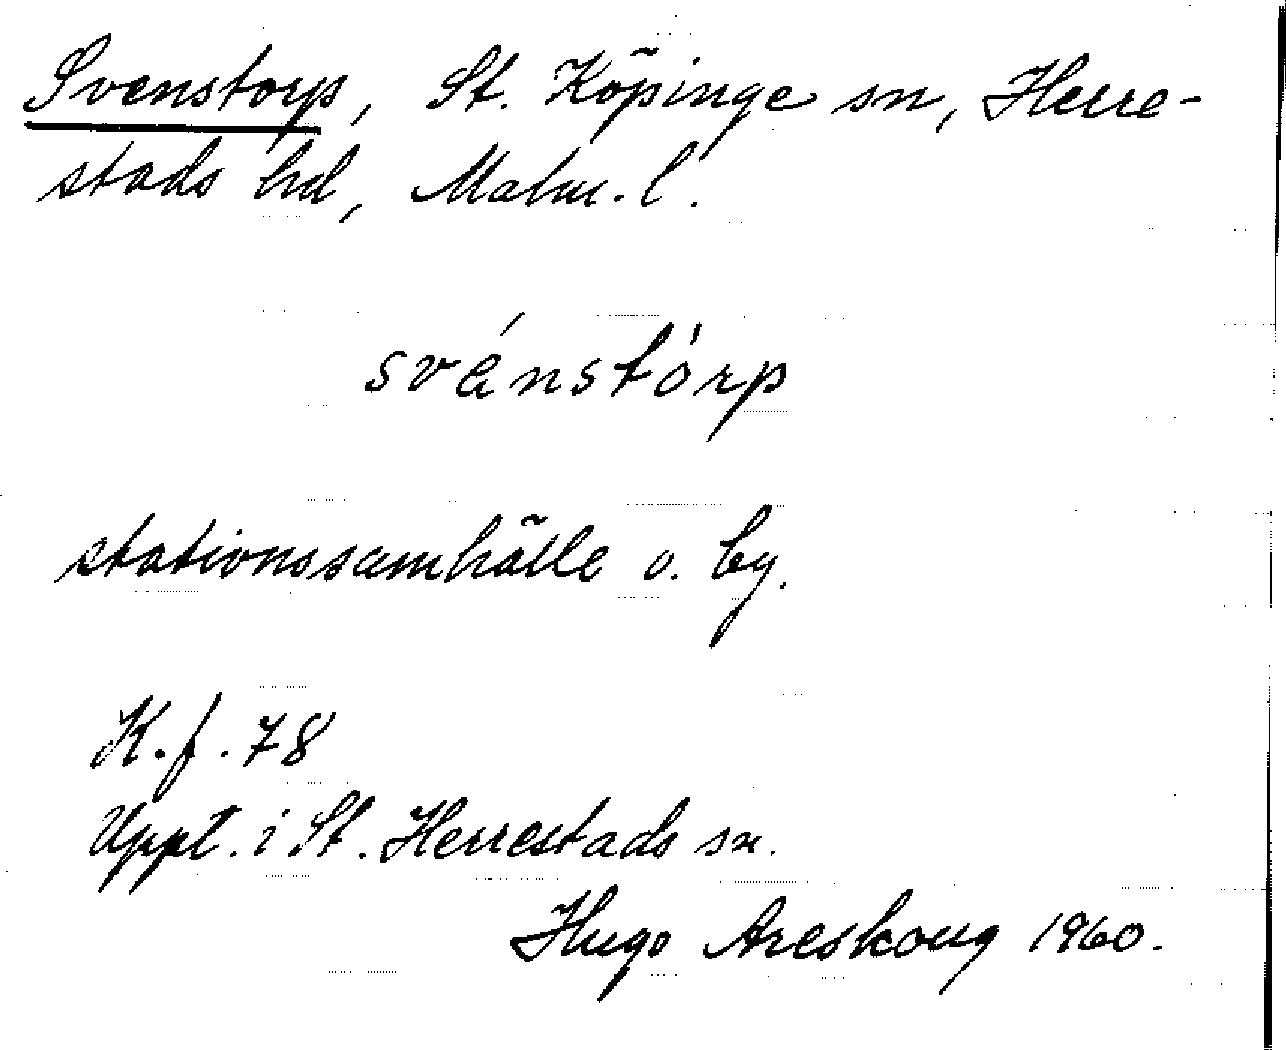 Svenstorp, St. Köpinge sn, Herre-
stads hd, Malm. l.
svánstórp
stationssamhälle o. by.
K. f. 78
Uppt. i St. Herrestads sn.
Hugo Areskoug 1960.